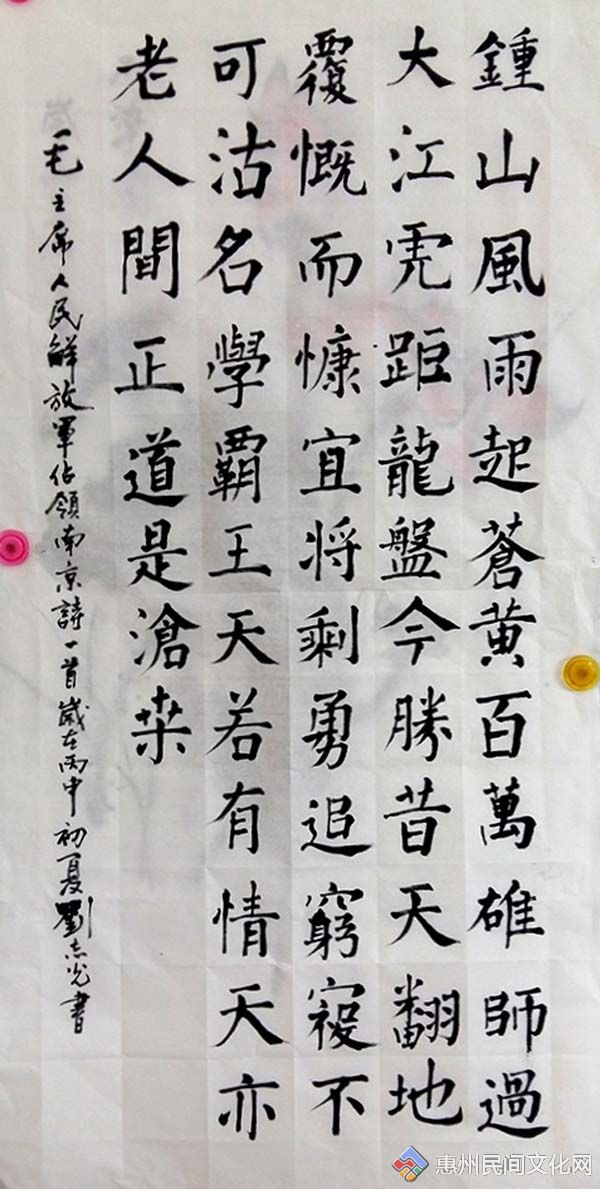 鍾山風雨起蒼黃百萬雄師過
大江虎踞龍盤今勝昔天翻地
覆慨而慷宜将剩勇追窮寇不
可沽名學霸王天若有情天亦
老人間正道是滄桑
毛主席人民解放軍佔領南京詩一首歲在丙申初夏劉志光書
惠州民间文化网